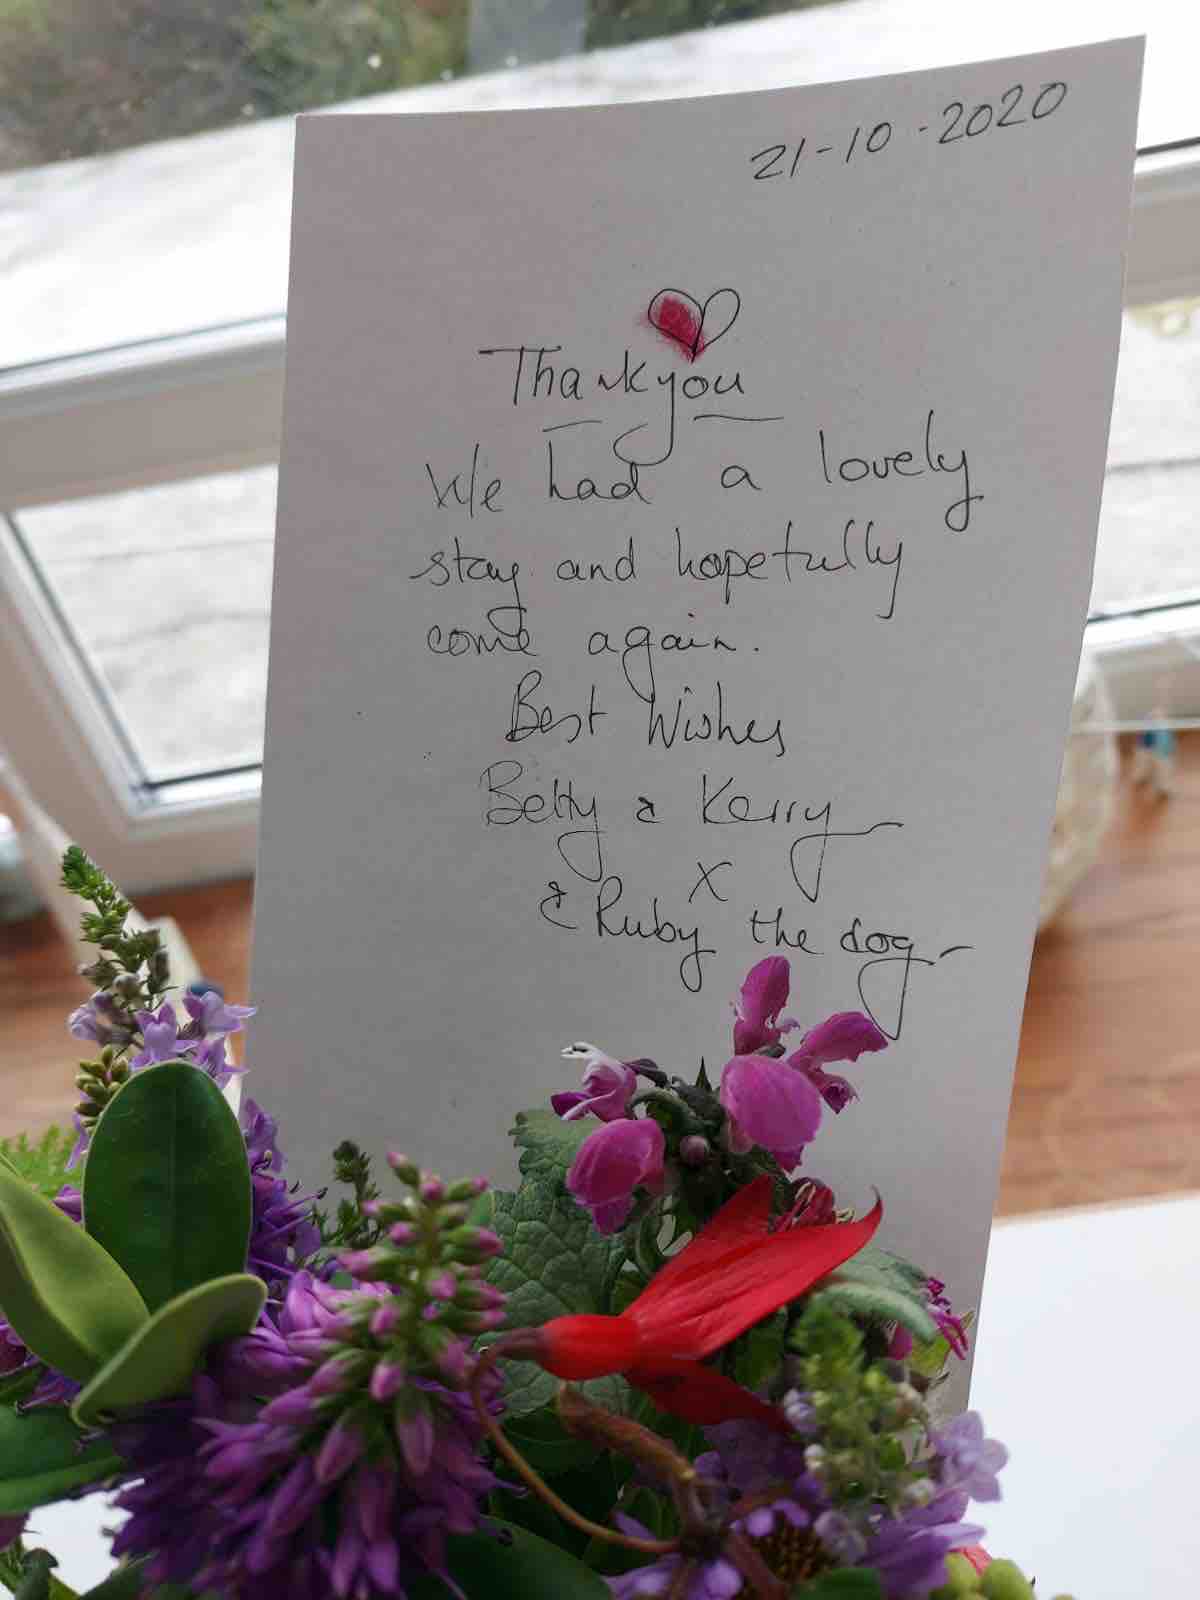 21-10-2020
Thankyou
We had a lovely
stay and hopefully
come again.
Best Wishes
Betty & Kerry
X
& Ruby the dog